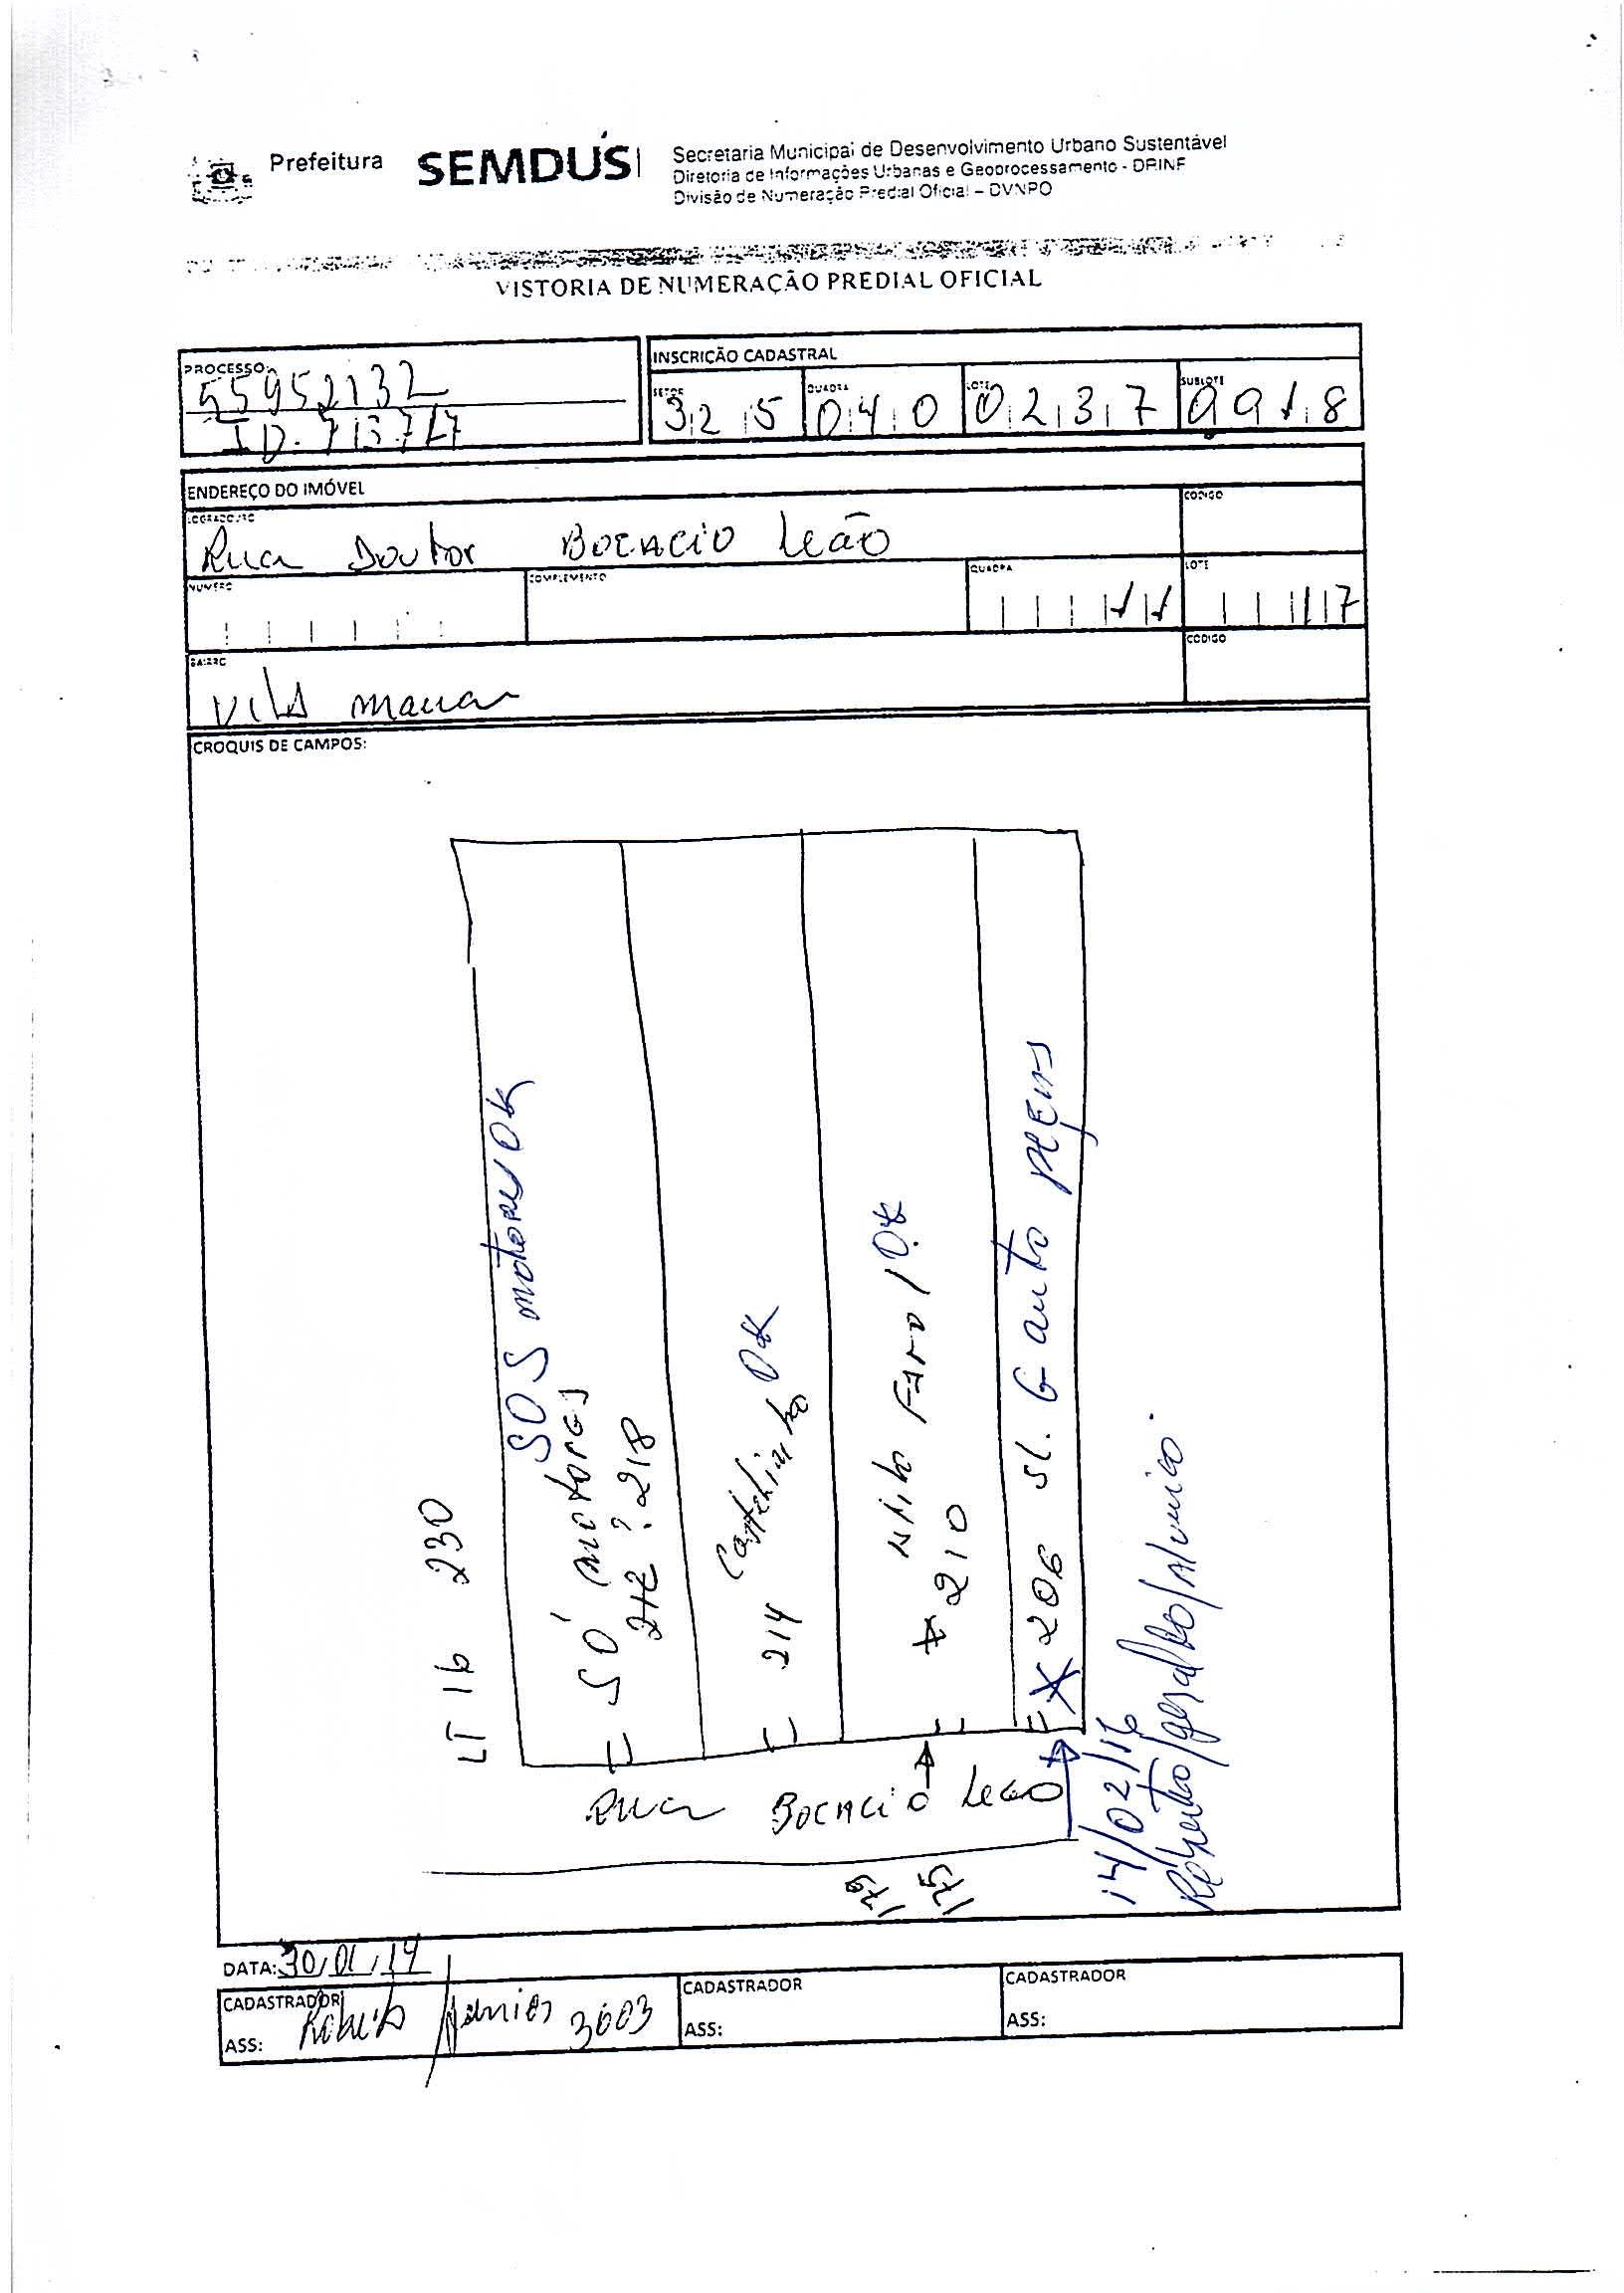 Prefeitura
SEMDUS
Secretaria Municipal de Desenvolvimento Urbano Sustentável
Diretoria de Informações Urbanas e Geoprocessamento - DRINF
Divisão de Numeração Predial Oficial – DVNPO
VISTORIA DE NUMERAÇÃO PREDIAL OFICIAL
PROCESSO:
55952132
INSCRIÇÃO CADASTRAL
SETOR
325
QUADRA
040
LOTE
0237
SUBLOTE
ENDEREÇO DO IMÓVEL
LOGRADOURO
Rua Doutor BOCACIO Leão
CODIGO
NUMERO
COMPLEMENTO
QUADRA
11
LOTE
17
BAIRRO
VILA maua
CODIGO
CROQUIS DE CAMPOS:
LT 16 230
SOS motores OK
SÓ motores
212 ? 218
214 Castelinho OK
* 210
206 sl. G auto peças
Rua BOCACIO Leão
179
175
14/02/16
DATA: 30/01/14
CADASTRADOR
ASS:
3003
CADASTRADOR
ASS:
CADASTRADOR
ASS: